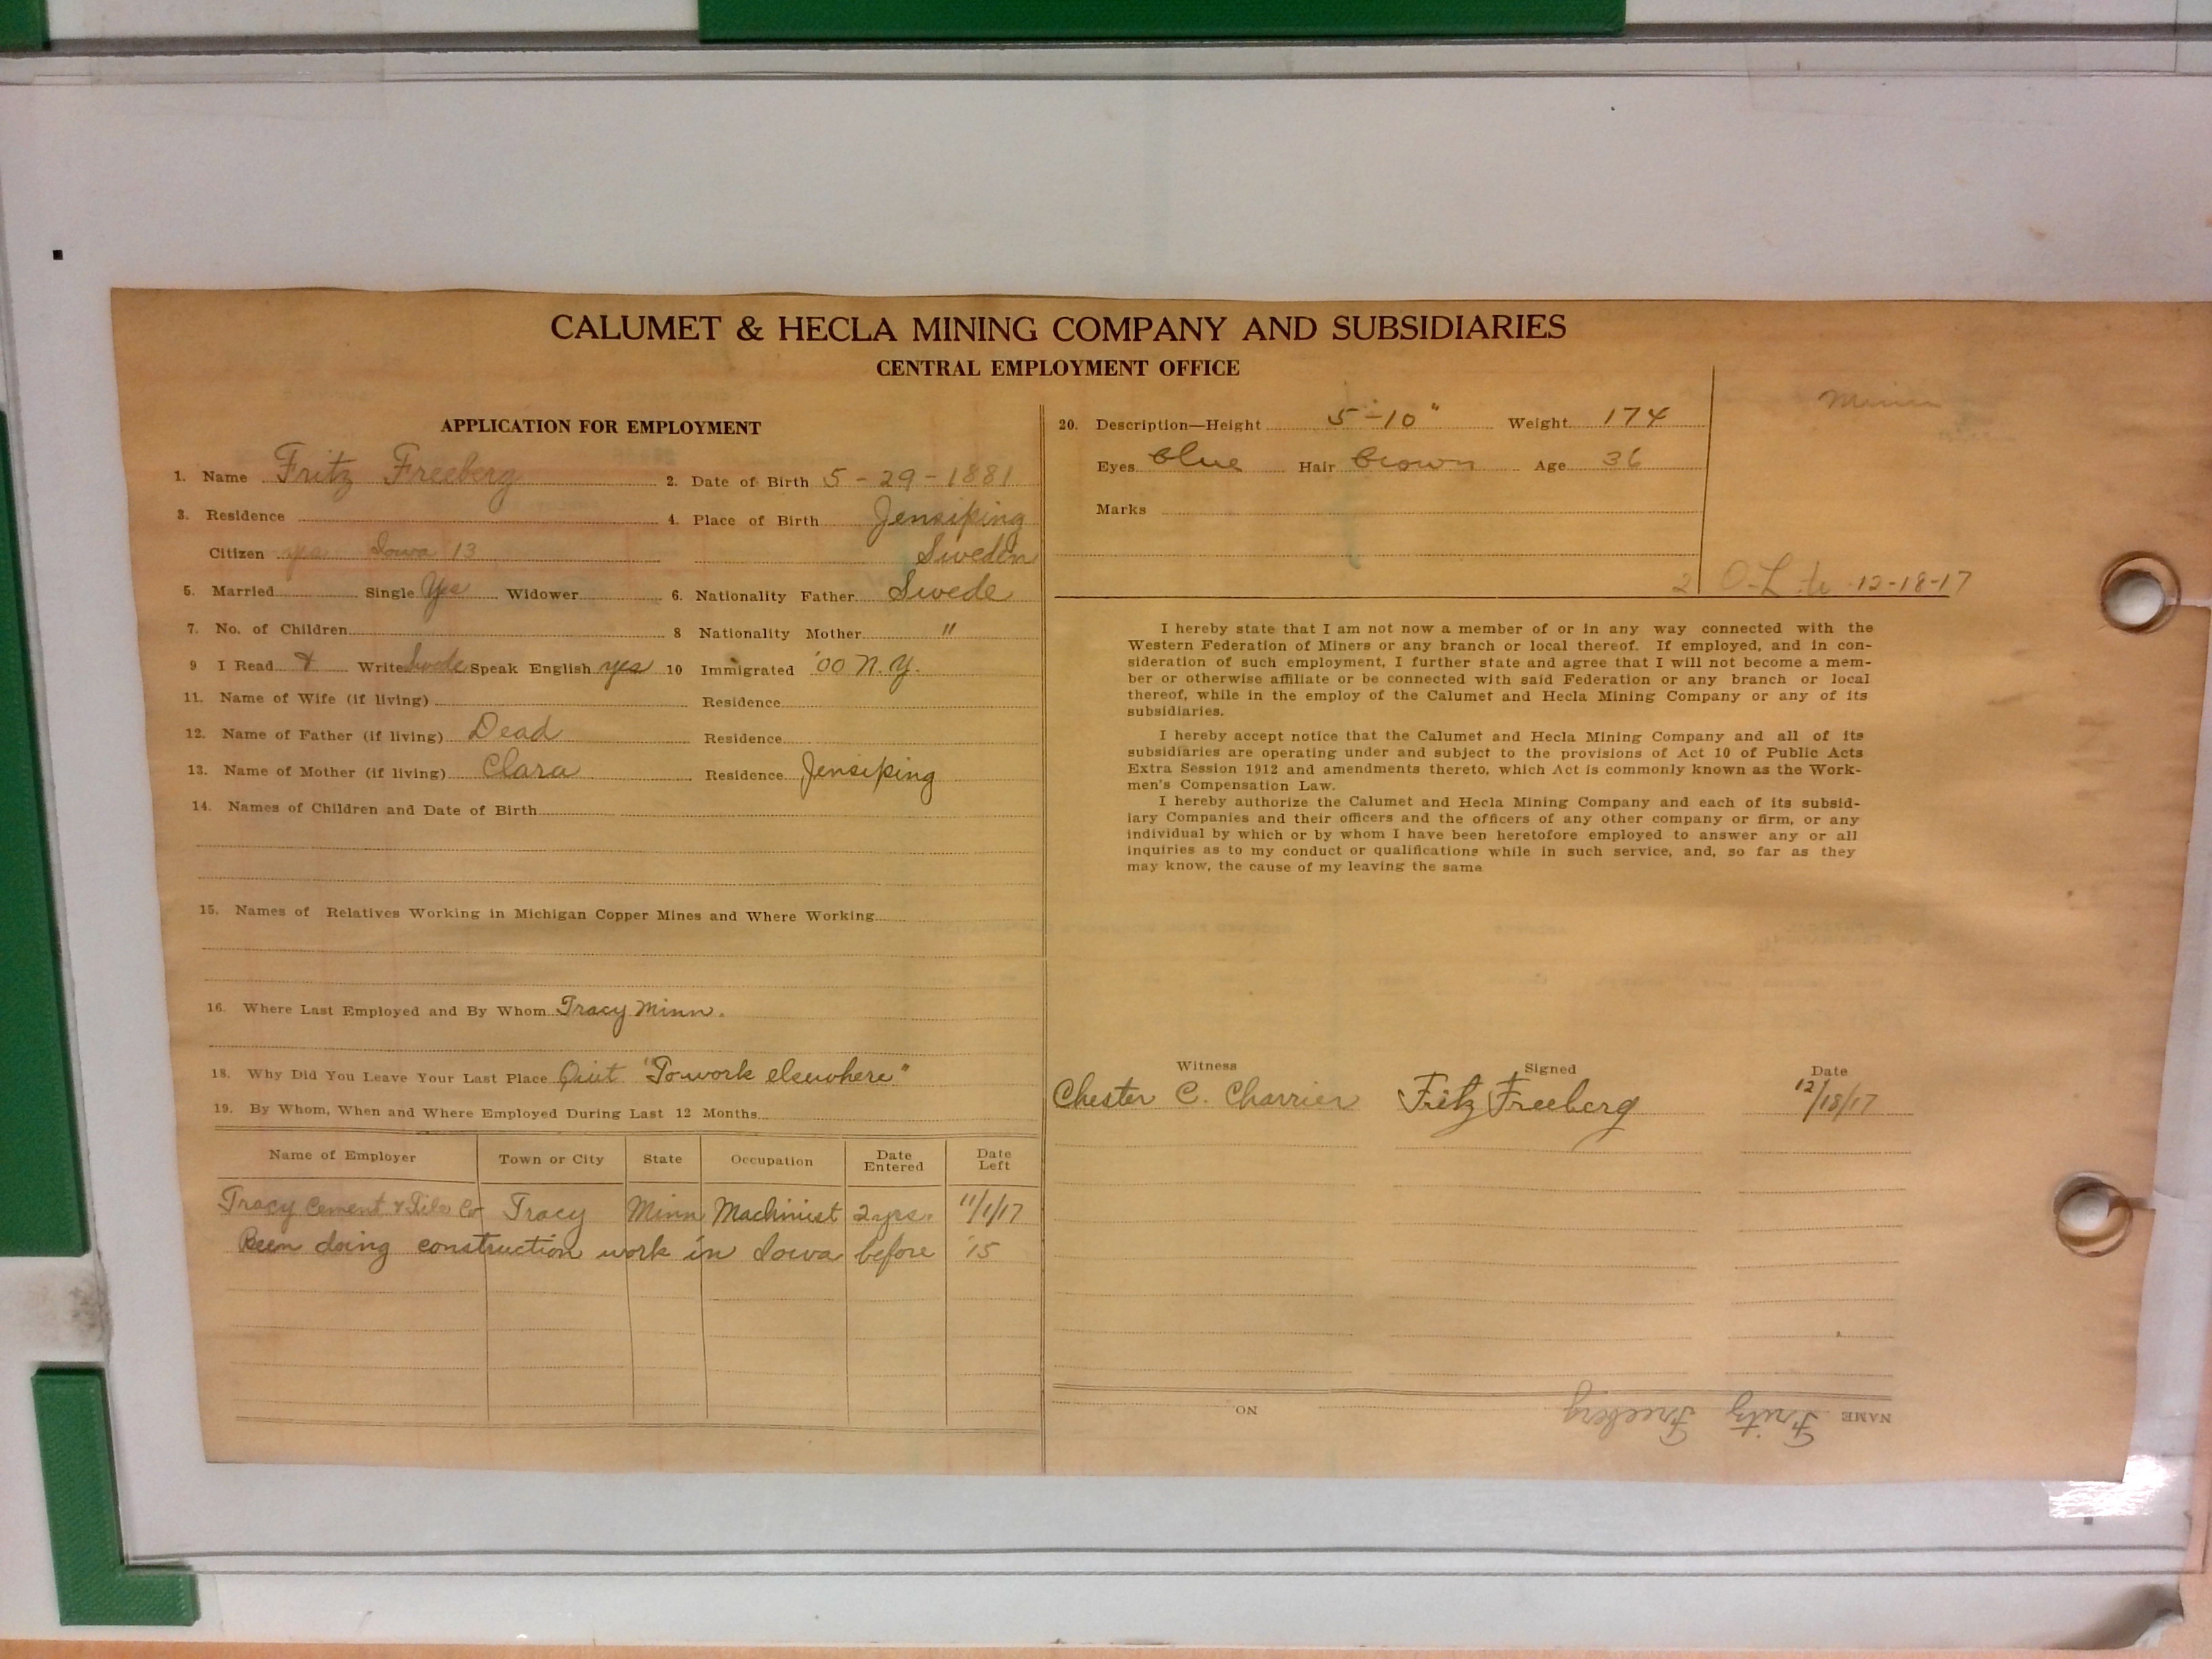 CALUMET & HECLA MINING COMPANY AND SUBSIDIARIES
CENTRAL EMPLOYMENT OFFICE
APPLICATION FOR EMPLOYMENT
1. Name Fritz Freeberg 2. Date of Birth 5-29-1881
3. Residence 4. Place of Birth Jensiping
Citizen yes Iowa 13 Sweden
5. Married Single Yes Widower 6. Nationality Father Swede
7. No. of Children 8 Nationality Mother "
9 I Read & Write Swede Speak English yes 10 Immigrated '00 N.Y.
11. Name of Wife (if living) Residence
12. Name of Father (if living) Dead Residence
13. Name of Mother (if living) Clara Residence Jensiping
14. Names of Children and Date of Birth
15. Names of Relatives Working in Michigan Copper Mines and Where Working
16. Where Last Employed and By Whom Tracy Minn.
18. Why Did You Leave Your Last Place Quit "To work elsewhere"
19. By Whom, When and Where Employed During Last 12 Months
Name of Employer Town or City State Occupation Date Entered Date Left
Tracy Cement & Tile Co Tracy Minn Machinist 2 yrs. 11/1/17
Been doing construction work in Iowa before '15
20. Description—Height 5'-10" Weight 174
Minn
Eyes blue Hair brown Age 36
Marks
2 O-L 12-18-17
I hereby state that I am not now a member of or in any way connected with the
Western Federation of Miners or any branch or local thereof. If employed, and in con-
sideration of such employment, I further state and agree that I will not become a mem-
ber or otherwise affiliate or be connected with said Federation or any branch or local
thereof, while in the employ of the Calumet and Hecla Mining Company or any of its
subsidiaries.
I hereby accept notice that the Calumet and Hecla Mining Company and all of its
subsidiaries are operating under and subject to the provisions of Act 10 of Public Acts
Extra Session 1912 and amendments thereto, which Act is commonly known as the Work-
men's Compensation Law.
I hereby authorize the Calumet and Hecla Mining Company and each of its subsid-
iary Companies and their officers and the officers of any other company or firm, or any
individual by which or by whom I have been heretofore employed to answer any or all
inquiries as to my conduct or qualifications while in such service, and, so far as they
may know, the cause of my leaving the same
Witness Signed Date
Chester C. Charrier Fritz Freeberg 12/18/17
NAME Fritz Freeberg NO.